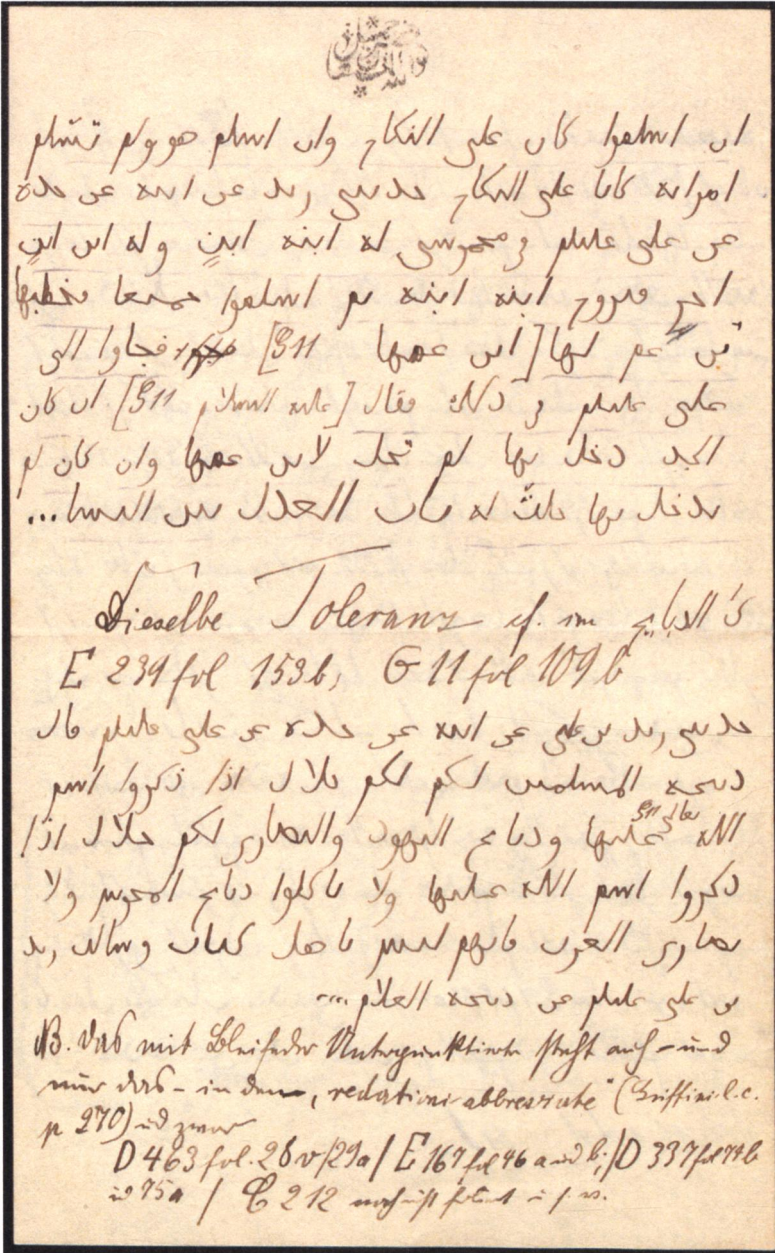 ان اسلموا كان على النكاح وان اسلم هو ولم تسلم
امراته كانا على النكاح حدثنى زيد عن ابيه عن جده
عن على عليلم فى مجوسى له ابنة ابنٍ وله ابن ابنٍ
اخر فتزوج ابنة ابنه ثم اسلموا جميعا فخطبها
ابن عم لها [ابن عمها G11] فجاوا الى
على عليلم فى ذلك فقال [عليه السلام G11] ان كان
الجد دخل بها لم تحل لابن عمها وان كان لم
يدخل بها حلّت له باب العدل بين النسا...
Dieselbe Toleranz cf. im ك' الذبايح
E 239 fol 153b, G 11 fol 109b
حدثنى زيد بن على عن ابيه عن جده عن على عليلم قال
ذبيحة المسلمين لكم حلال اذا ذكروا اسم
الله تعالى G11 عليها وذبايح اليهود والنصارى لكم حلال اذا
ذكروا اسم الله عليها ولا تاكلوا ذبايح المجوس ولا
نصارى العرب فانهم ليسوا باهل كتاب وسالت زيد
بن على عليلم عن ذبيحة الغلام...
NB. Das mit Bleifeder Unterpunktierte steht auch - und
nur das - in den „redazioni abbreviate" (Griffini l.c.
p 270) und zwar
D 463 fol. 28v/29a / E 167 fol 46 a und b; / D 337 fol 74b
und 75a / C 212 noch nicht foliiert u.s.w.